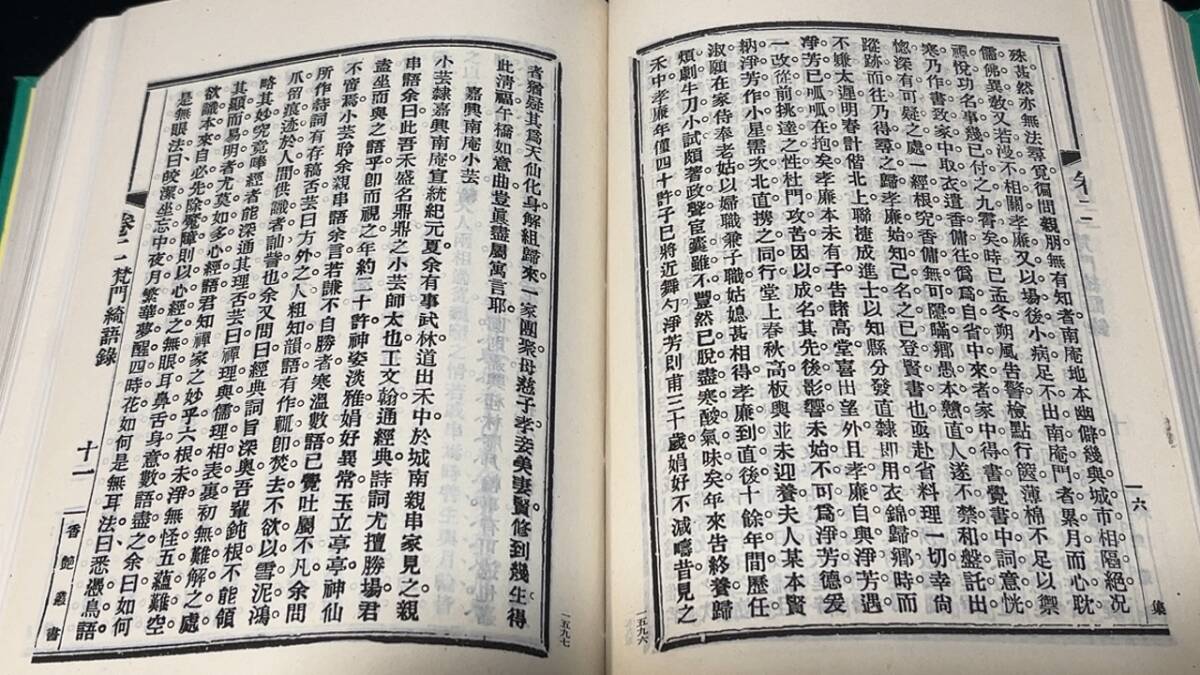 殊甚然亦無法尋覓徧問親朋無有知者南庵地本幽僻幾與城市相隔絕況
儒佛異敎又若漠不相關孝廉又以場後小病足不出南庵門者累月而心耽
禪悅功名事幾已付之九霄矣時已孟冬朔風告警檢點行篋薄棉不足以禦
寒乃作書致家中取衣遣香傭往僞爲自省中來者家中得書覺書中詞意恍
惚深有可疑之處一經根究香傭無可隱瞞鄕愚本戇直人遂不禁和盤託出
蹤跡而往乃得尋之歸孝廉始知己名之已登賢書也亟赴省料理一切幸尙
不嫌太遲明春計偕北上聯捷成進士以知縣分發直隸卽用衣錦歸鄕時而
淨芳已呱呱在抱矣孝廉本未有子告諸高堂喜出望外且孝廉自與淨芳遇
一改從前挑達之性杜門攻苦因以成名其先後影響未始不可爲淨芳德爰
納淨芳作小星需次北直携之同行堂上春秋高板輿並未迎養夫人某本賢
淑願在家侍奉老姑以婦職兼子職姑媳甚相得孝廉到直後十餘年間歷任
煩劇牛刀小試頗著政聲宦囊雖不豐然已脫盡寒酸氣味矣年來告終養歸
禾中孝廉年僅四十許子已將近舞勺淨芳則甫三十歲娟好不減疇昔見之
卷二
六
集
一五九六
者猶疑其爲天仙化身解組歸來一家團聚母慈子孝妾美妻賢修到幾生得
此淸福午橋如意曲豈眞盡屬寓言耶
嘉興南庵小芸
小芸隸嘉興南庵宣統紀元夏余有事武林道出禾中於城南親串家見之親
串語余曰此吾禾盛名鼎鼎之小芸師太也工文翰通經典詩詞尤擅勝場君
盍坐而與之語乎卽而視之年約二十許神姿淡雅娟好異常玉立亭亭神仙
不啻焉小芸聆余親串語余言若謙不自勝者寒溫數語已覺吐屬不凡余問
所作詩詞有存稿否芸曰方外之人粗知韻語有作輒卽焚去不欲以雪泥鴻
爪留痕迹於人間供識者訕誚也余又問曰經典詞旨深奧吾輩鈍根不能領
略其妙究竟唪經者能深通其理否芸曰禪理與儒理相表裏初無難解之處
其顯而易明者尤莫如多心經語君知禪家之妙乎六根未淨無怪五蘊難空
欲識本來自必先除魔障則以心經之無眼耳鼻舌身意數語盡之余曰如何
是無眼法曰皎潔坐忘中夜月繁華夢醒四時花如何是無耳法曰悉憑鳥語
卷二 梵門綺語錄
十一
香艶叢書
一五九七